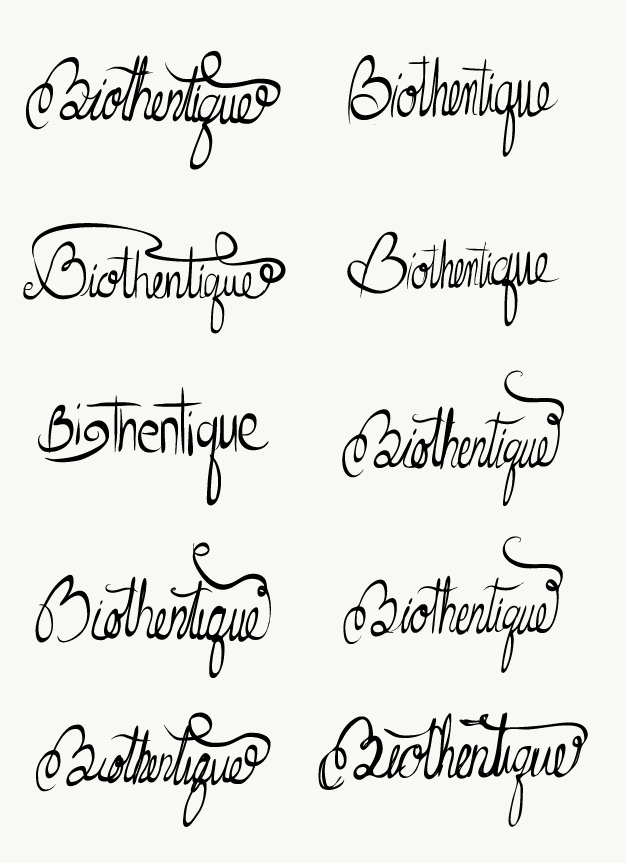 Biothentique Biothentique
Biothentique Biothentique
Biothentique Biothentique
Biothentique Biothentique
Biothentique Biothentique